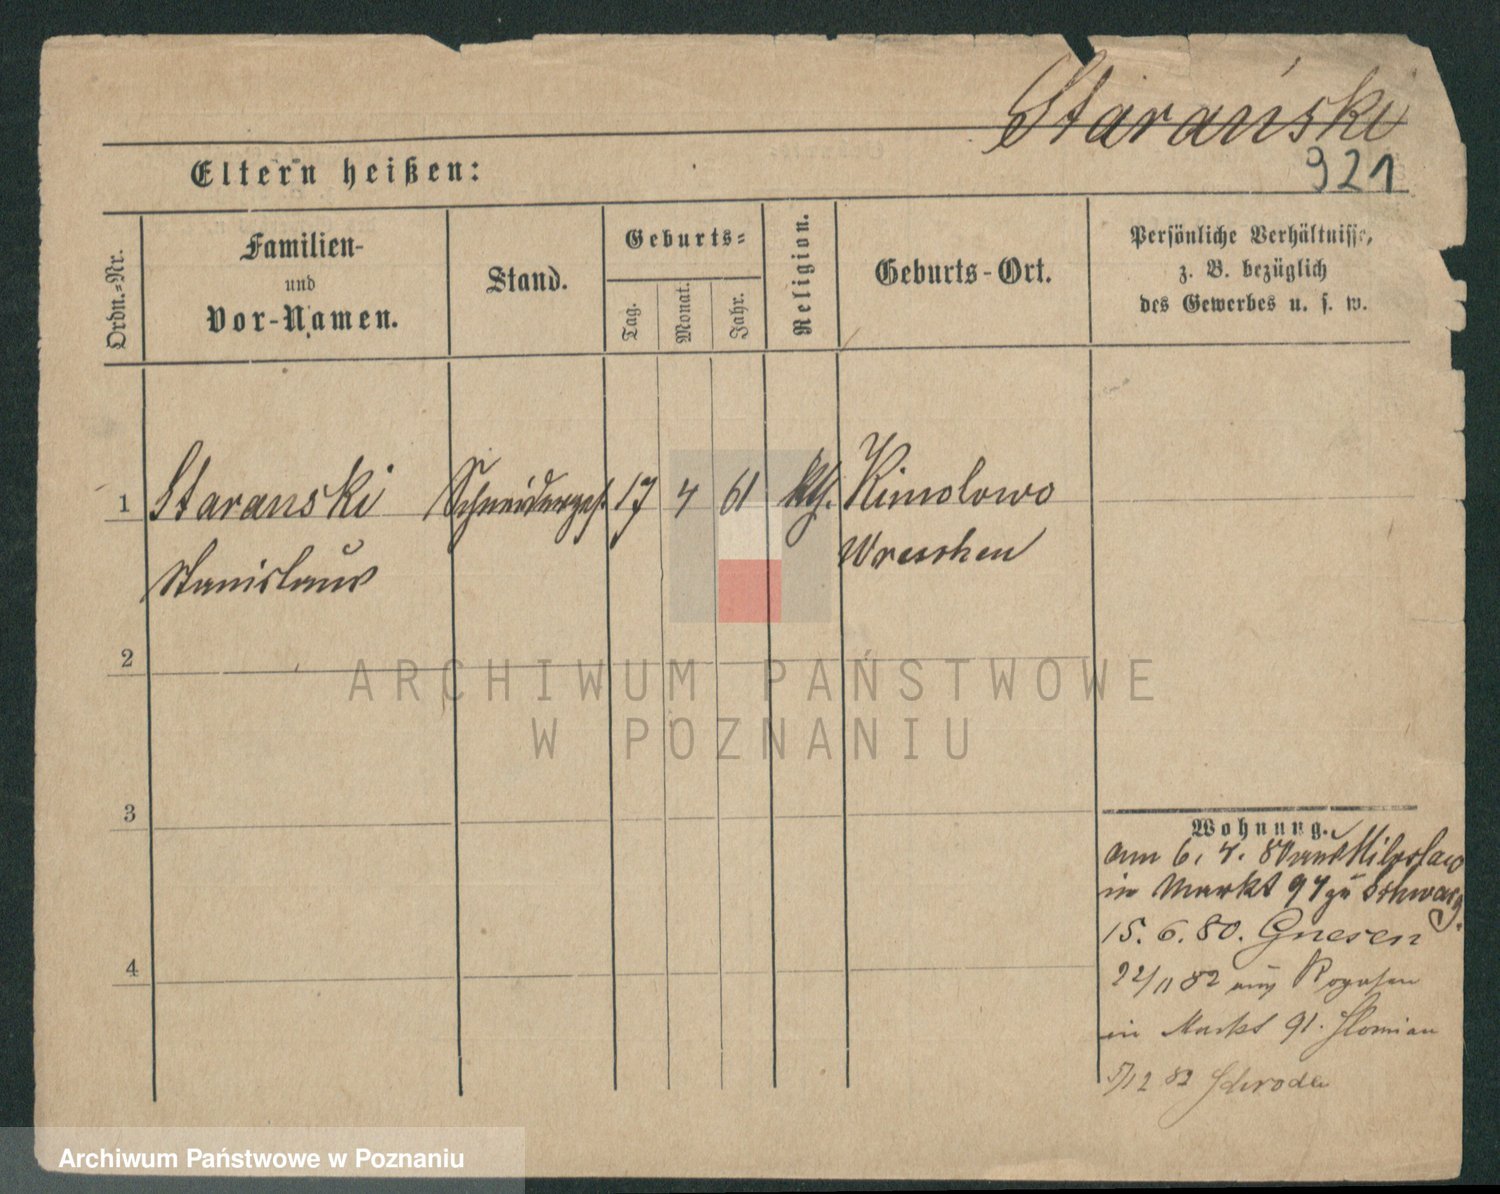 Starański
921
Eltern heißen:
Ordn.-Nr.
Familien-
und
Vor-Namen.
Stand.
Geburts-
Tag.
Monat.
Jahr.
Religion.
Geburts-Ort.
Persönliche Verhältnisse,
z. B. bezüglich
des Gewerbes u. s. w.
1 Staranski Schneiderges. 17 4 61 kth. Kimolowo
Stanislaus Wreschen
2
3
4
Wohnung.
am 6. 4. 80 aus Miloslaw
in Markt 94 zu
15. 6. 80. Gnesen
22/11 82 aus Rogasen
in Markt 91.
5/12 82 Schroda
ARCHIWUM PAŃSTWOWE
W POZNANIU
Archiwum Państwowe w Poznaniu